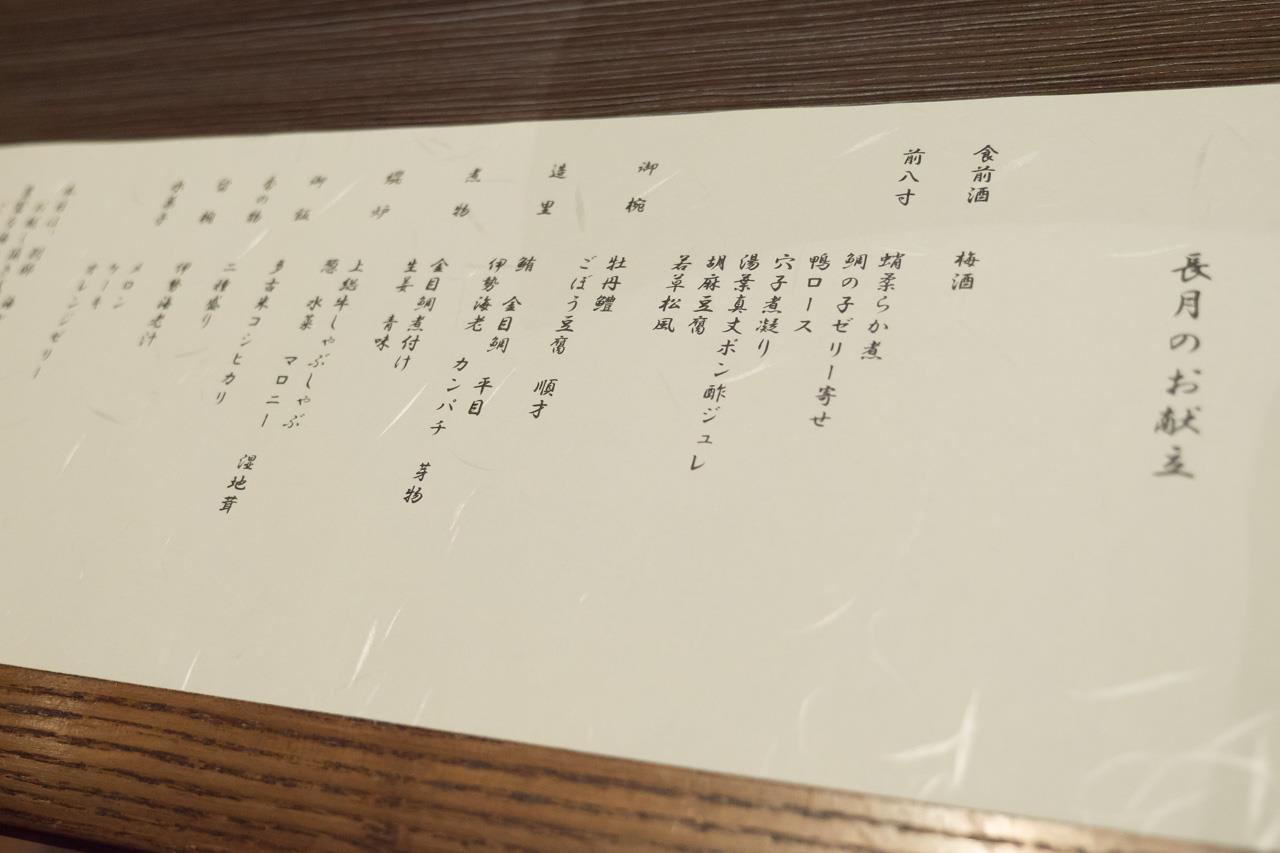 長月のお献立
食前酒 梅酒
前八寸 蛸柔らか煮
鯛の子ゼリー寄せ
鴨ロース
穴子煮凝り
湯葉真丈ポン酢ジュレ
胡麻豆腐
若草松風
御椀 牡丹鱧
ごぼう豆腐 順才
造里 鮪 金目鯛 平目
伊勢海老 カンパチ 芽物
煮物 金目鯛煮付け
生姜 青味
焜炉 上総牛しゃぶしゃぶ
葱 水菜 マロニー 湿地茸
御飯 多古米コシヒカリ
香の物 二種盛り
留椀 伊勢海老汁
水菓子 メロン
ケーキ
オレンジゼリー